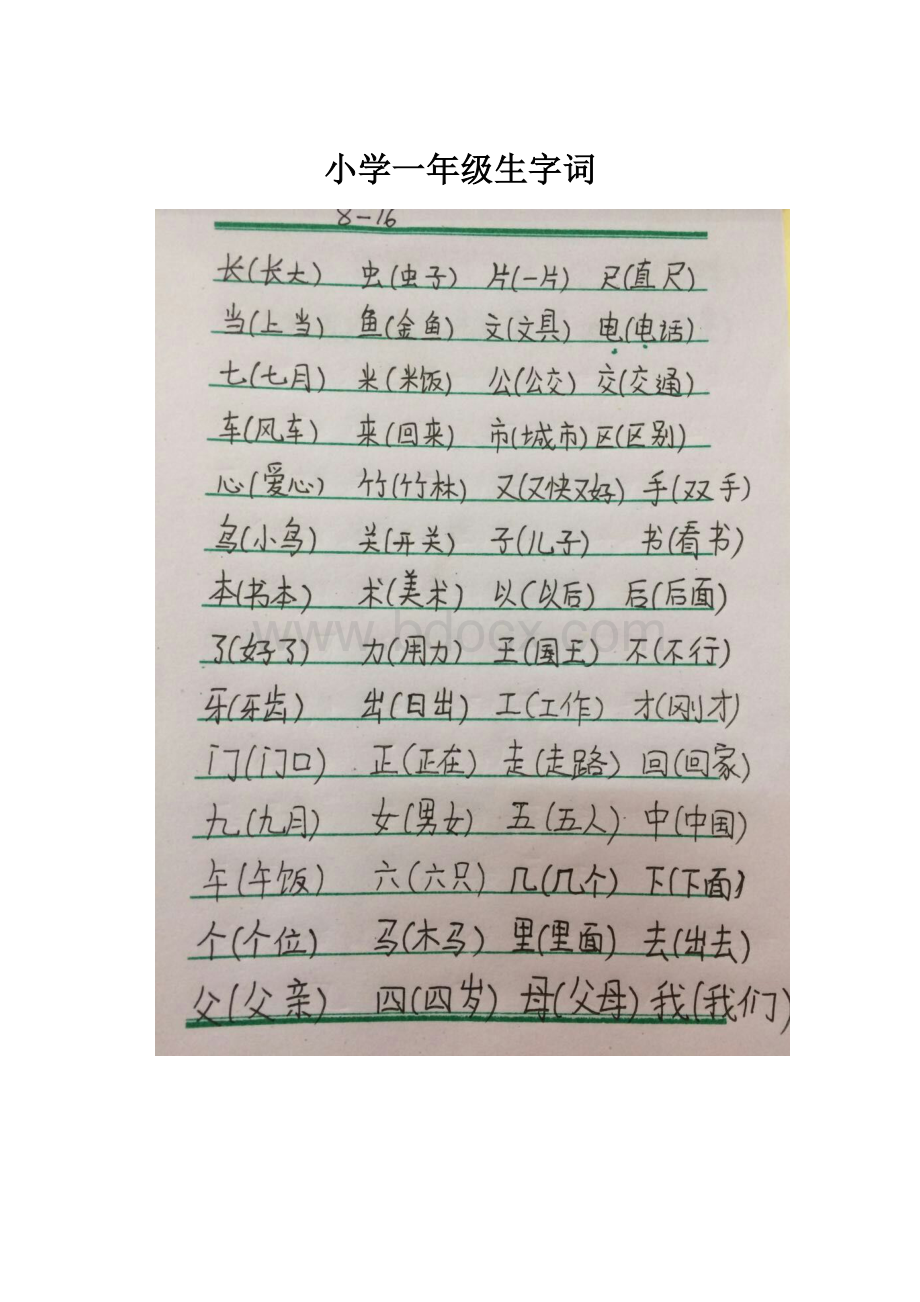 小学一年级生字词
8-16
长(长大) 虫(虫子) 片(一片) 尺(直尺)
当(上当) 鱼(金鱼) 文(文具) 电(电话)
七(七月) 米(米饭) 公(公交) 交(交通)
车(风车) 来(回来) 市(城市) 区(区别)
心(爱心) 竹(竹林) 又(又快又好) 手(双手)
鸟(小鸟) 关(开关) 子(儿子) 书(看书)
本(书本) 术(美术) 以(以后) 后(后面)
www.bdocx.com
了(好了) 力(用力) 王(国王) 不(不行)
牙(牙齿) 出(日出) 工(工作) 才(刚才)
门(门口) 正(正在) 走(走路) 回(回家)
九(九月) 女(男女) 五(五人) 中(中国)
午(午饭) 六(六只) 几(几个) 下(下面)
个(个位) 马(木马) 里(里面) 去(出去)
父(父亲) 四(四岁) 母(父母) 我(我们)